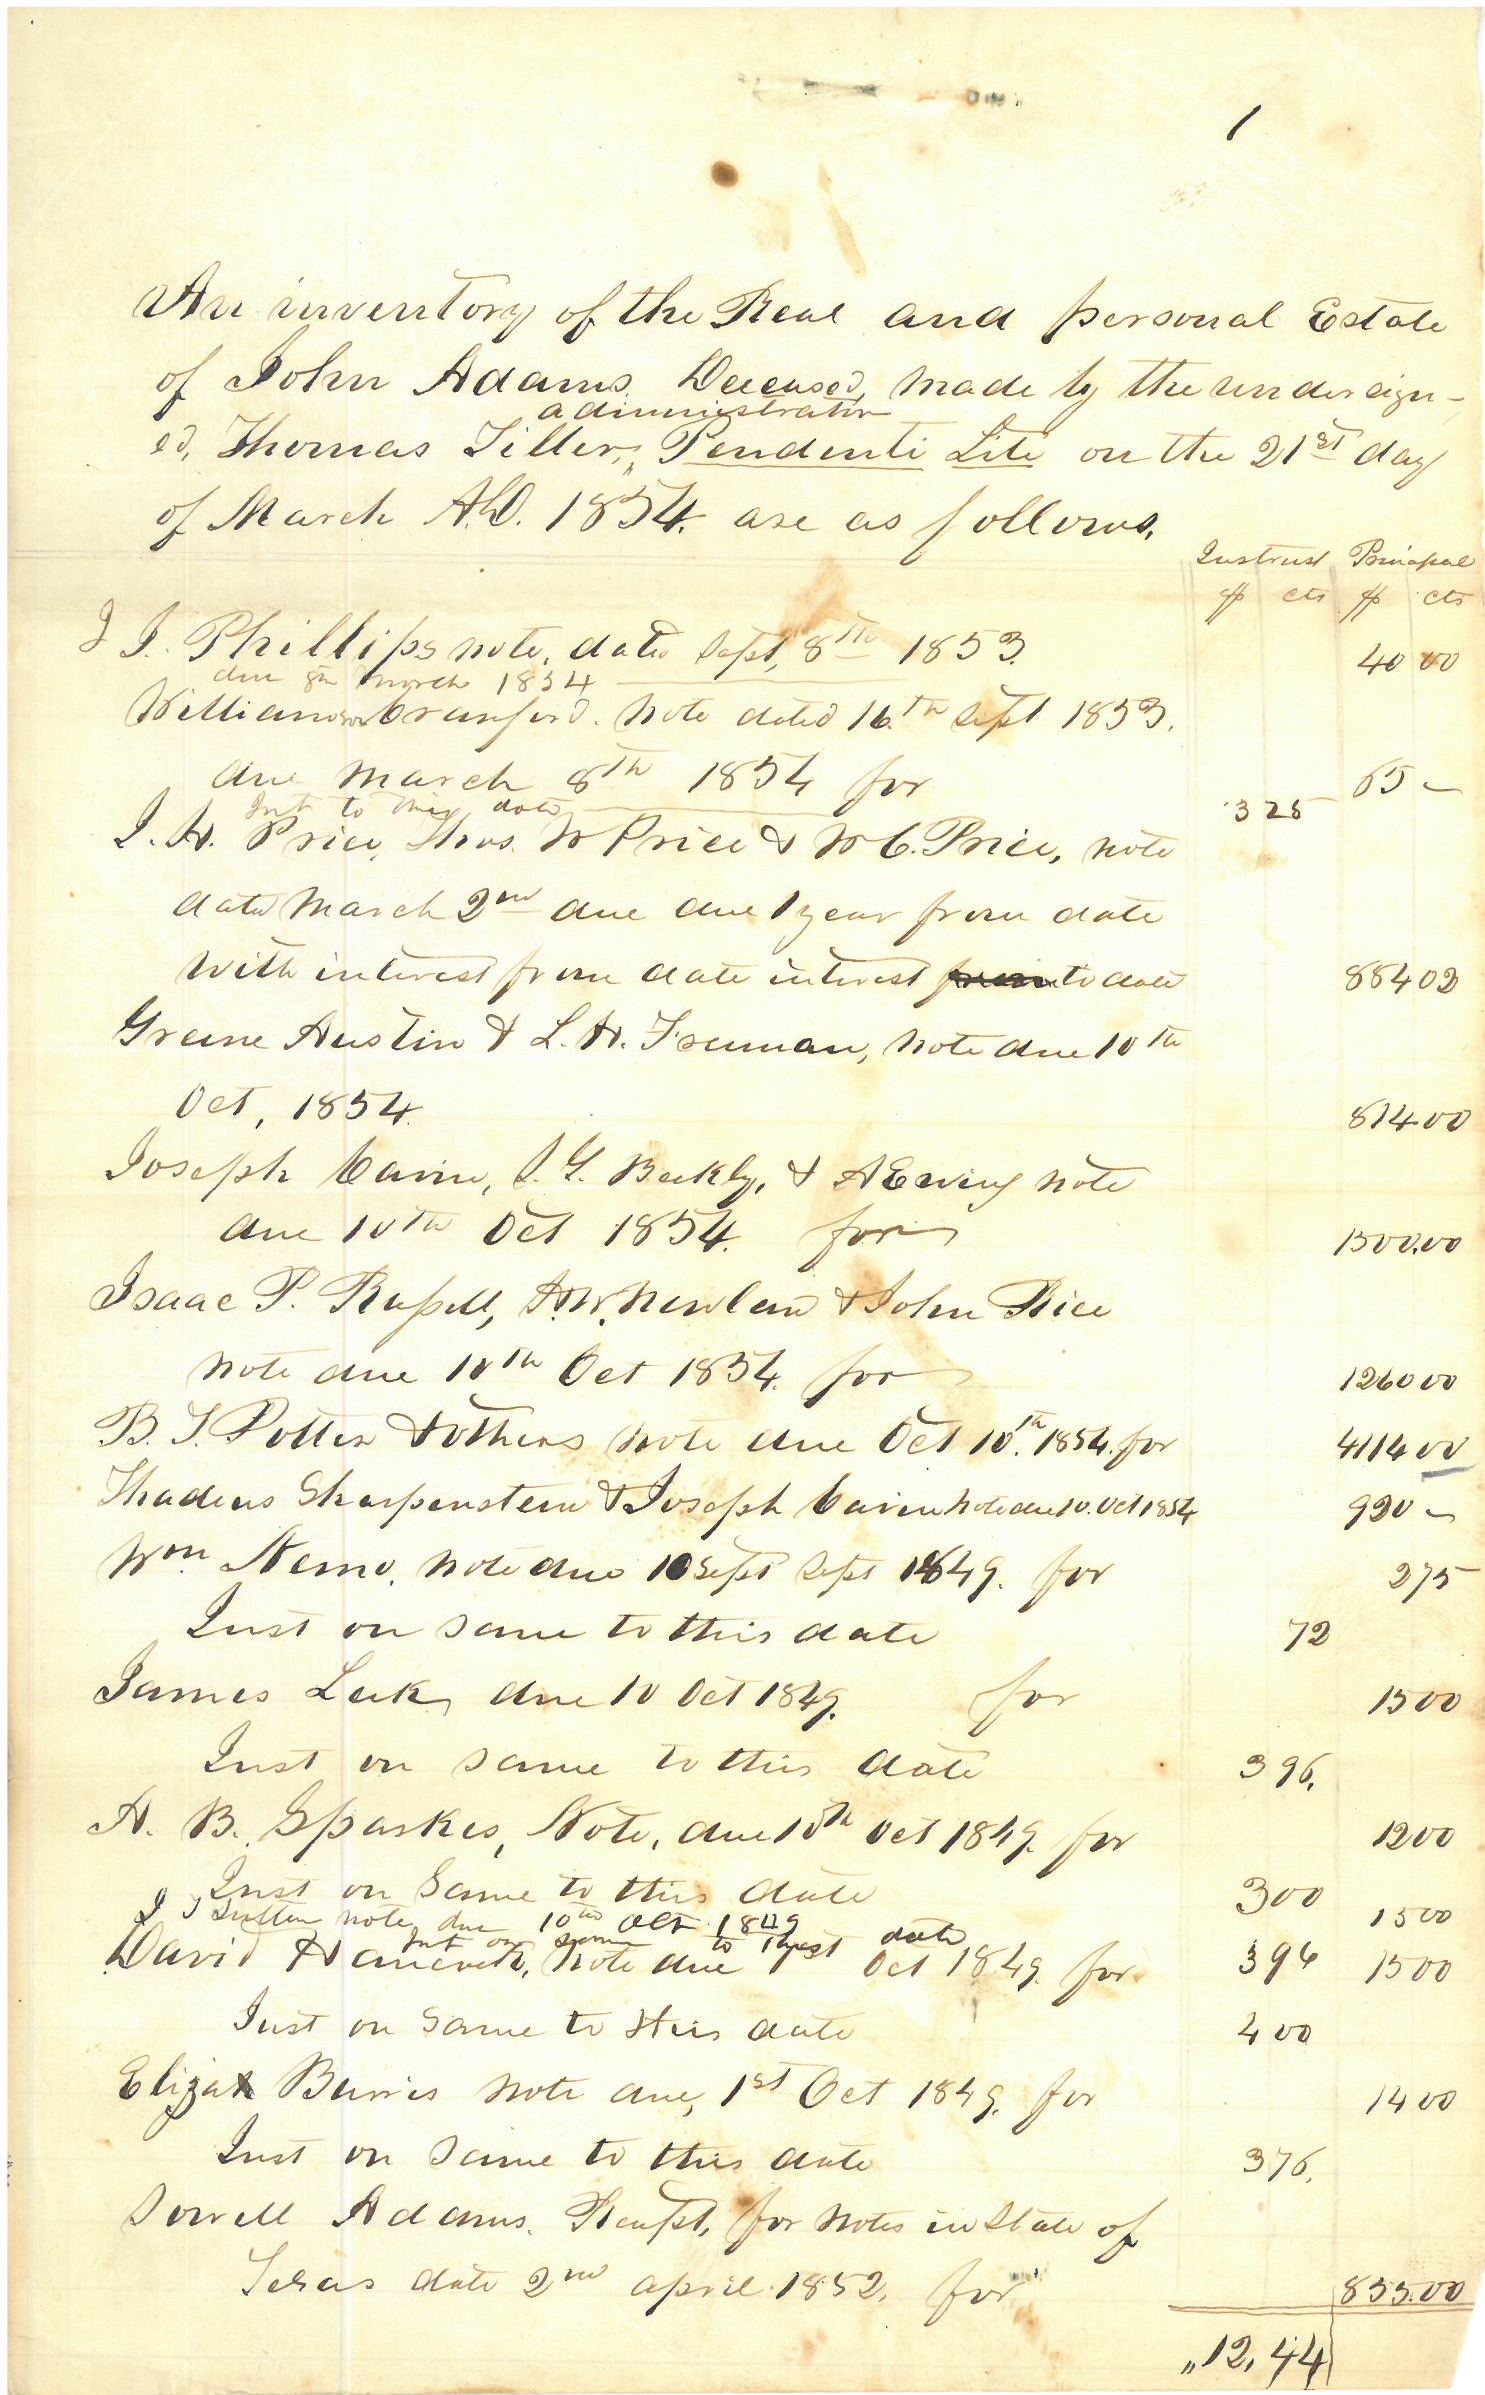 1
An inventory of the Real and personal Estate
of John Adams Deceased, made by the undersign-
administrator
ed, Thomas Tiller, Pendenti Lite on the 21st day
of March A.D. 1854. are as follows.
Intrust Principal
$ cts $ cts
J J. Phillips note, date Sept, 8th 1853. 40 00
due 8th March 1854
Williamson Cranford. note dated 16th Sept 1853.
due March 8th 1854 for 65 –
Int to this date 3 25
J. H. Price, Thos. W Price & W C. Price, note
date March 2nd due due 1 year from date
with interest from date interest from to date 88402
Greene Austin & L. H. Freeman, note due 10th
Oct, 1854. 814 00
Joseph Cavin, J. G. Beekly, & A Ewing note
due 10th Oct 1854. for 1300.00
Isaac P. Russell, H. W. Newland & John Rice
note due 10th Oct 1854. for 1260 00
B. T. Potter & others note due Oct 10th. 1854. for 4114 00
Thadeus Sharpenstein & Joseph Cavin note due 10. Oct 1854 920 –
Wm. Nemo. note due 10 Sept Sept 1849. for 275
Inst on same to this date 72
James Leek, due 10 Oct 1849. for 1500
Inst on same to this date 396.
A. B. Sparkes, Note, due 10th Oct 1849. for 1200
Inst on Same to this date 300
J J note, due 10th Oct 1849 1500
Int on same to this date 396
David note due 1st Oct 1849. for 1500
Inst on Same to this date 400
Eliza Burris note due, 1st Oct 1849. for 1400
Inst on Same to this date 376.
Sowell Adams. Recpt, for notes in State of
Texas date 2nd april 1852. for 835.00
" 12,44